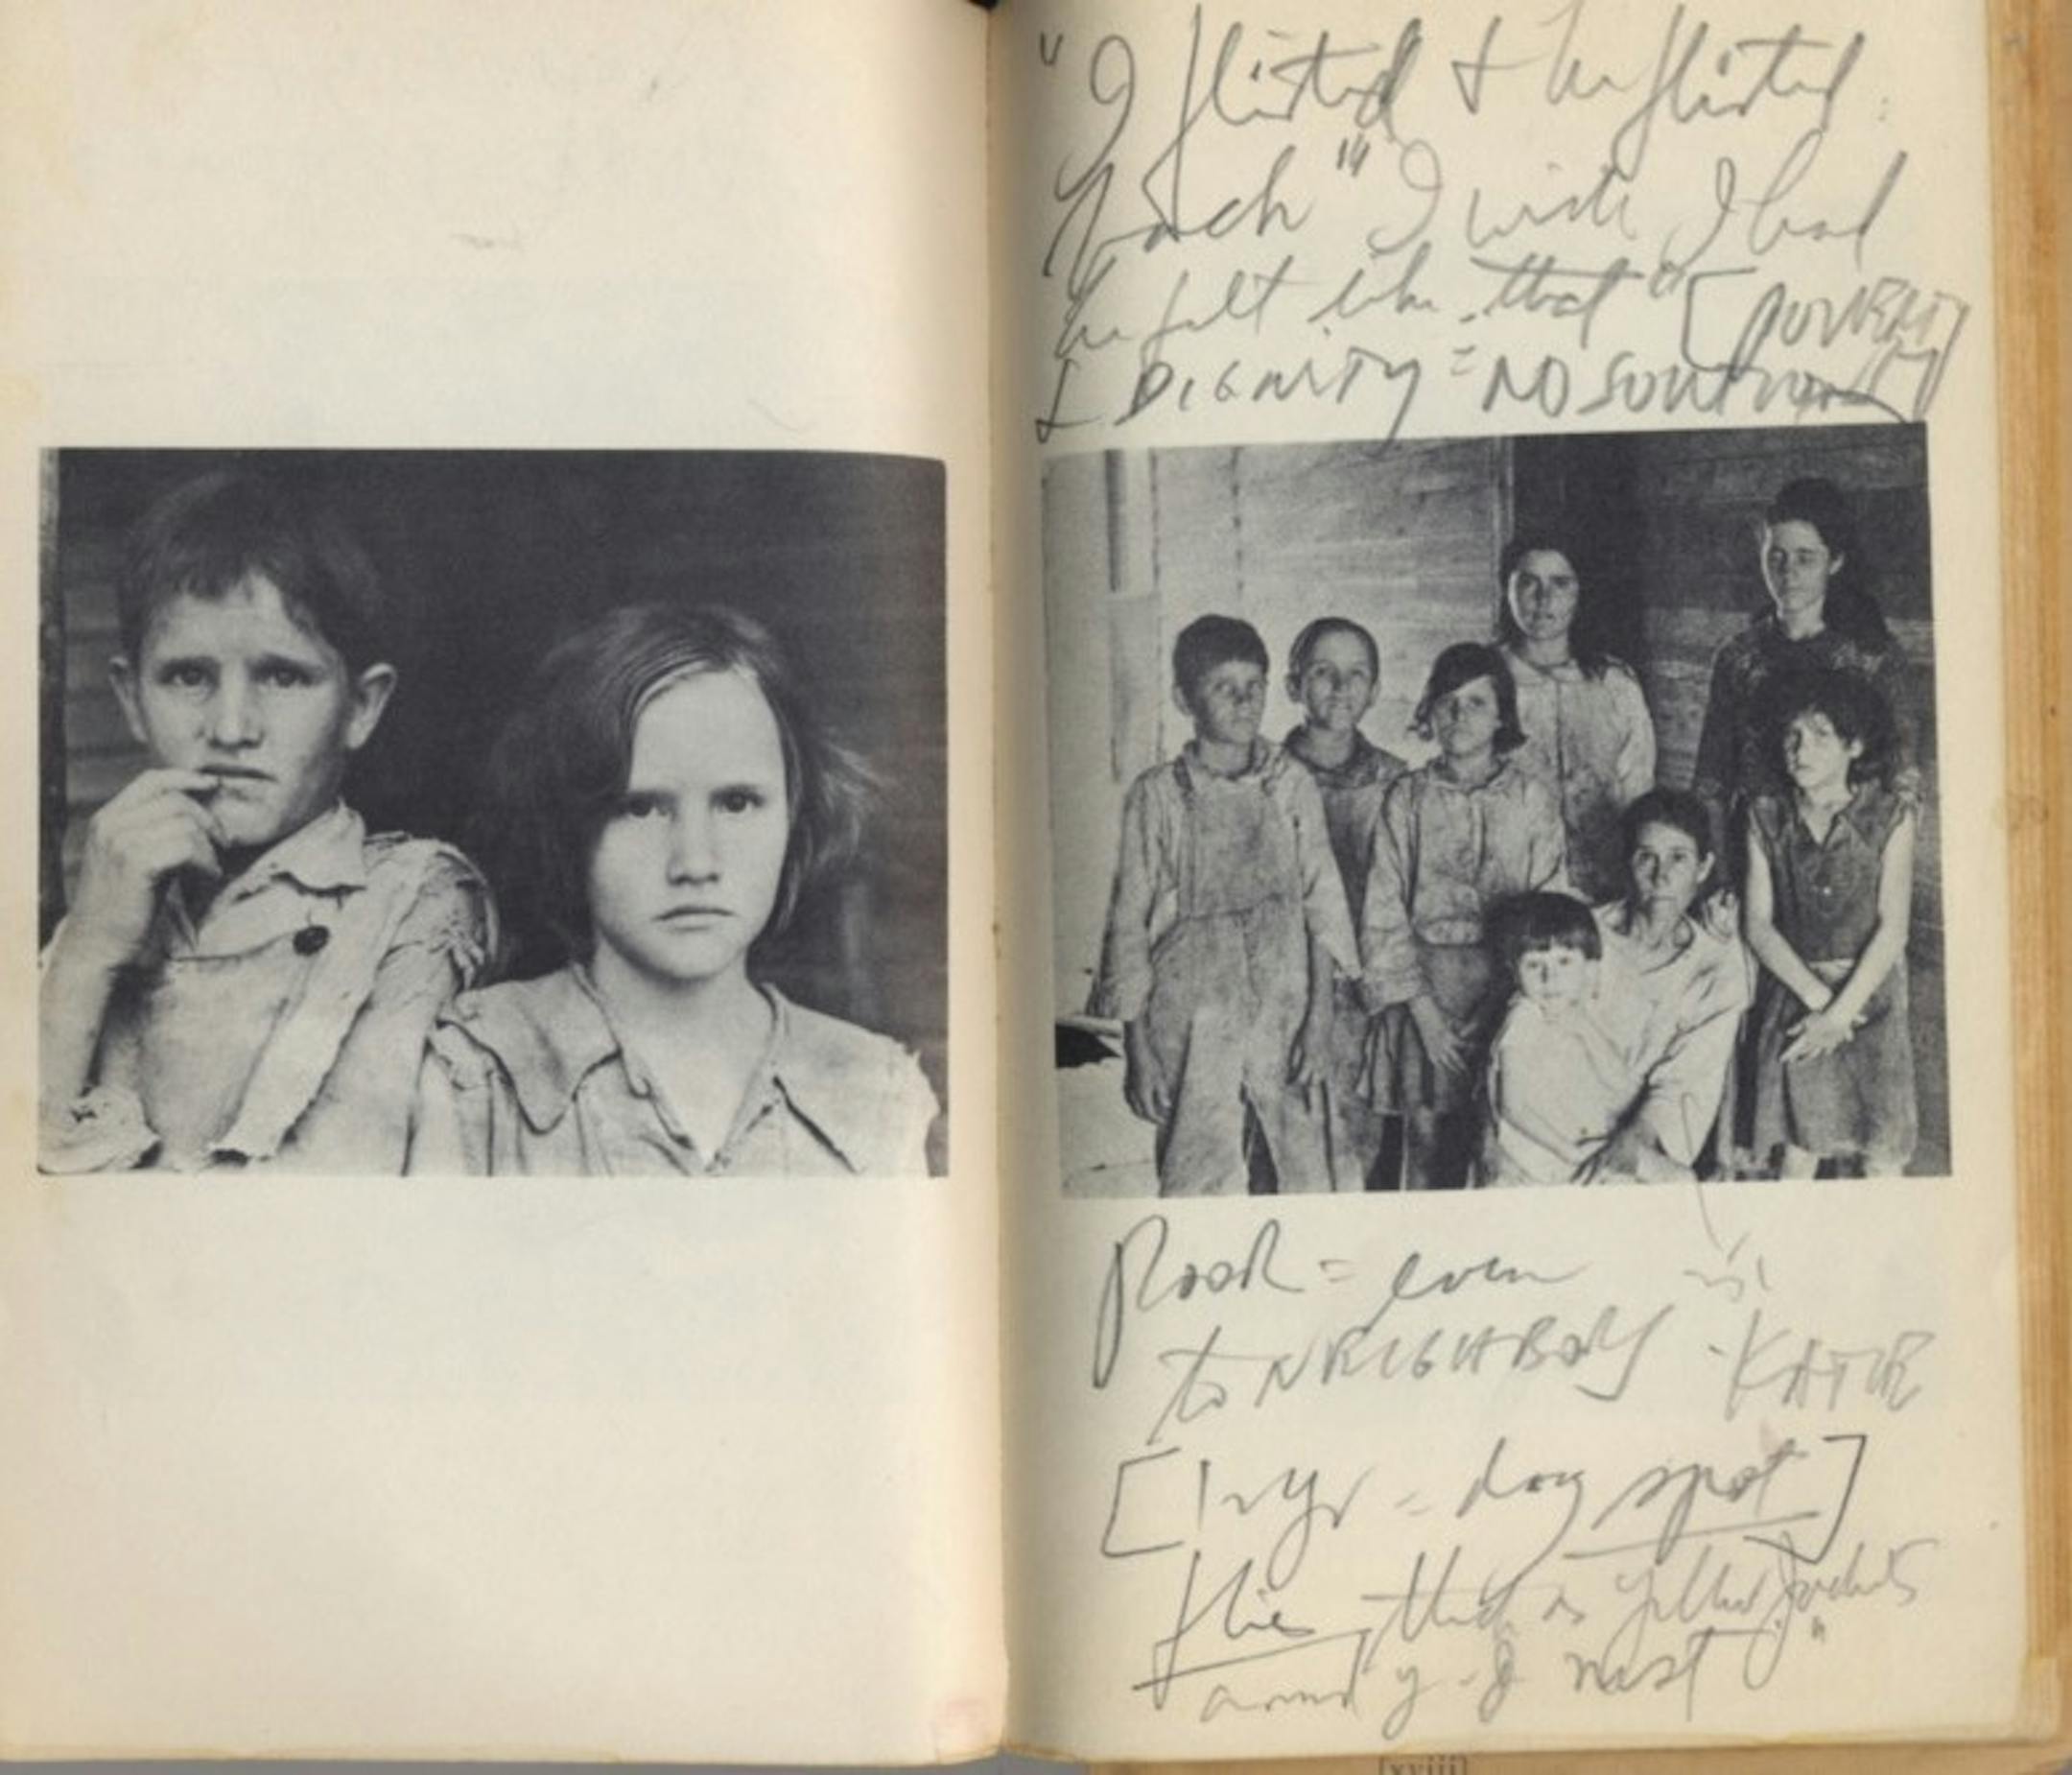 "I flirted & he flirted
back" "I wish I had
he felt like that" [POVERTY
& DIGNITY = NO SOLUTION]
POOR = even
to NEIGHBORS - KATIE
[12 yr - dog spot]
flies thick as yellow jackets
around y-J nest"
[xviii]